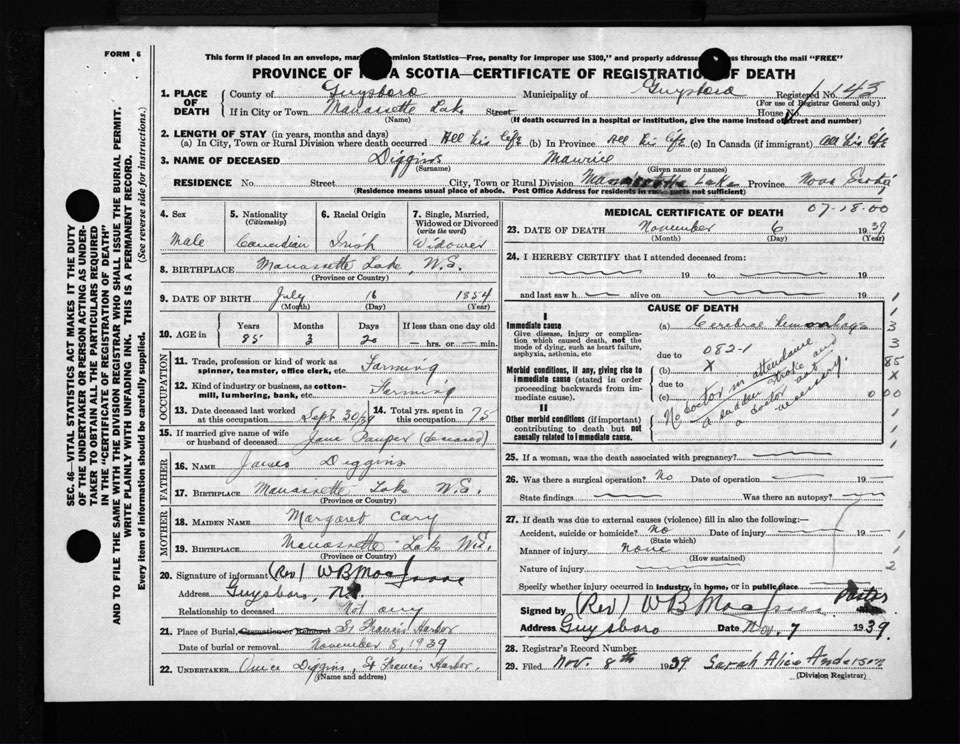 FORM 6
This form if placed in an envelope, mar minion Statistics—Free, penalty for improper use $300," and properly addresse ss through the mail "FREE"
PROVINCE OF VA SCOTIA—CERTIFICATE OF REGISTRATION OF DEATH
1. PLACE OF DEATH County of Guysboro Municipality of Guysboro Registered No. 43
(For use of Registrar General only)
If in City or Town Manassette Lake Street House No.
(Name) (If death occurred in a hospital or institution, give the name instead of street and number)
2. LENGTH OF STAY (in years, months and days)
(a) In City, Town or Rural Division where death occurred All his life (b) In Province All his life (c) In Canada (if immigrant) All his life
3. NAME OF DECEASED Diggins Maurice
(Surname) (Given name or names)
RESIDENCE No. Street City, Town or Rural Division Manassette Lake Province Nova Scotia
(Residence means usual place of abode. Post Office Address for residents in parts not sufficient)
4. Sex Male
5. Nationality (Citizenship) Canadian
6. Racial Origin Irish
7. Single, Married, Widowed or Divorced (write the word) Widower
8. BIRTHPLACE Manassette Lake, N.S.
(Province or Country)
9. DATE OF BIRTH July 16 1854
(Month) (Day) (Year)
10. AGE in Years 85 Months 3 Days 20 If less than one day — hrs. or — min.
OCCUPATION
11. Trade, profession or kind of work as spinner, teamster, office clerk, etc. Farming
12. Kind of industry or business, as cotton-mill, lumbering, bank, etc. Farming
13. Date deceased last worked at this occupation Sept 30/39 14. Total yrs. spent in this occupation 75
15. If married give name of wife or husband of deceased Jane (deceased)
FATHER
16. NAME James Diggins
17. BIRTHPLACE Manassette Lake N.S.
(Province or Country)
MOTHER
18. MAIDEN NAME Margaret Cary
19. BIRTHPLACE Manassette Lake N.S.
(Province or Country)
20. Signature of informant (Rev) W B MacIsaac
Address Guysboro, N.S.
Relationship to deceased Not any
21. Place of Burial, Cremation or Removal St Francis Harbor
Date of burial or removal November 8, 1939
22. UNDERTAKER Diggins, St Francis Harbor.
(Name and address)
MEDICAL CERTIFICATE OF DEATH 07-18-00
23. DATE OF DEATH November 6 1939
(Month) (Day) (Year)
24. I HEREBY CERTIFY that I attended deceased from:
19 to 19
and last saw h alive on 19
CAUSE OF DEATH
I
Immediate cause (a) Cerebral hemorrhage
Give disease, injury or complication which caused death, not the mode of dying, such as heart failure, asphyxia, asthenia, etc
due to 082-1
Morbid conditions, if any, giving rise to immediate cause (stated in order proceeding backwards from immediate cause).
(b) X
due to
(c)
II
Other morbid conditions (if important) contributing to death but not causally related to immediate cause.
No doctor in attendance
a sudden stroke and
doctor not
necessary.
1
3
3
85
X
0 00
1
1
1
25. If a woman, was the death associated with pregnancy?
26. Was there a surgical operation? No Date of operation 19
State findings Was there an autopsy?
27. If death was due to external causes (violence) fill in also the following:—
Accident, suicide or homicide? No Date of injury 19
(State which)
Manner of injury None
(How sustained)
Nature of injury 2
Specify whether injury occurred in industry, in home, or in public place
Signed by (Rev) W B MacIsaac Pastor
Address Guysboro Date Nov. 7 1939.
28. Registrar's Record Number
29. Filed Nov. 8th 1939 Sarah Alice Anderson
(Division Registrar)
SEC. 46—VITAL STATISTICS ACT MAKES IT THE DUTY
OF THE UNDERTAKER OR PERSON ACTING AS UNDER-
TAKER TO OBTAIN ALL THE PARTICULARS REQUIRED
IN THE "CERTIFICATE OF REGISTRATION OF DEATH"
AND TO FILE THE SAME WITH THE DIVISION REGISTRAR WHO SHALL ISSUE THE BURIAL PERMIT.
WRITE PLAINLY WITH UNFADING INK. THIS IS A PERMANENT RECORD.
Every item of information should be carefully supplied. (See reverse side for instructions.)